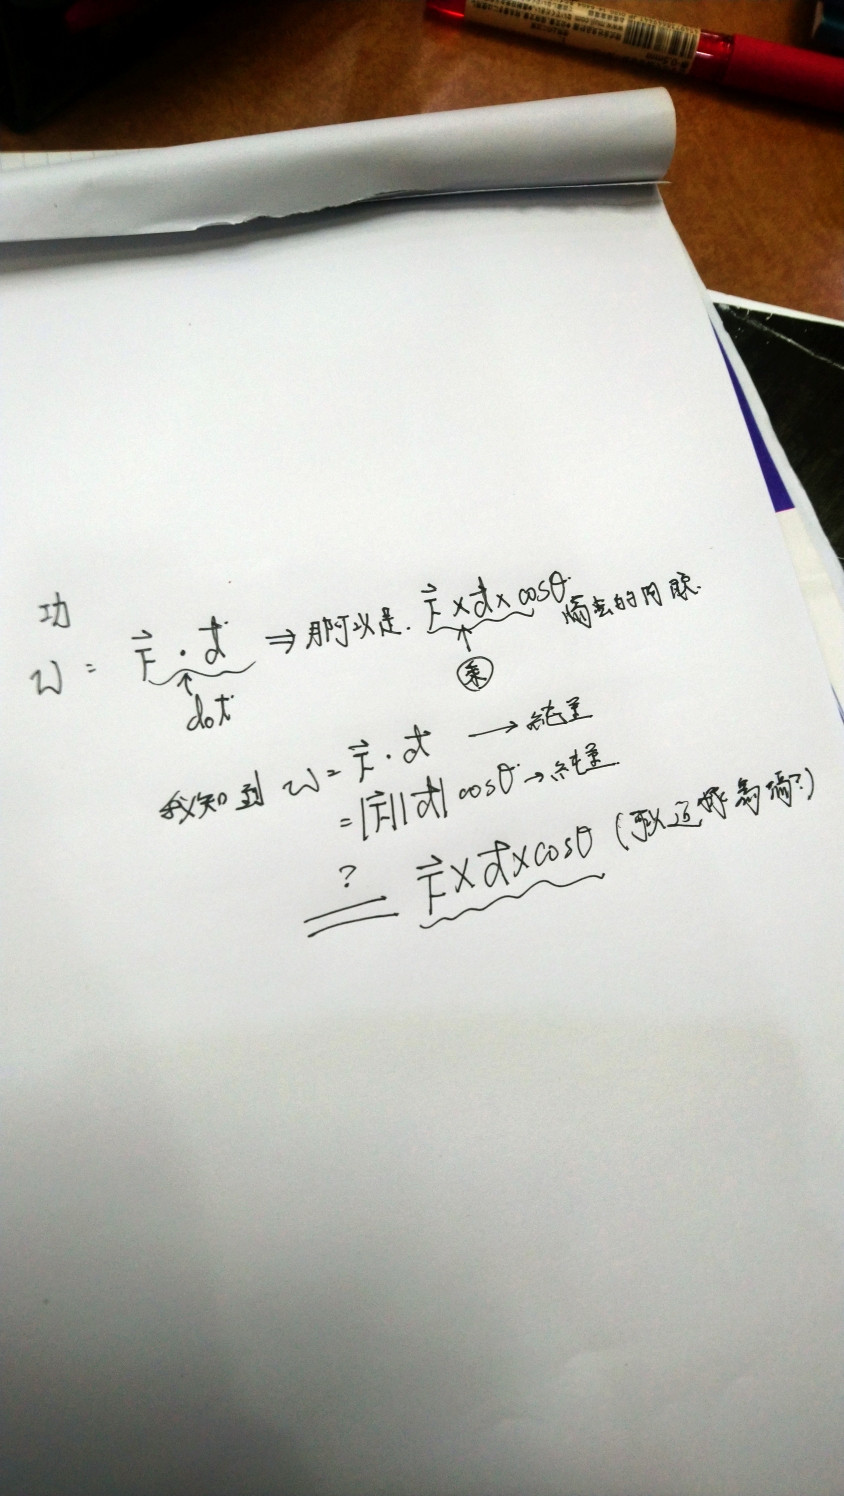 功
W = F⃗ · d⃗ ⇒ 那可以是. F⃗ × d⃗ × cosθ
↑ dot
↑ 乘
我知到 W = F⃗ · d⃗ → 純量
= |F⃗||d⃗| cosθ → 純量
? = F⃗ × d⃗ × cosθ (可以這樣寫嗎?)